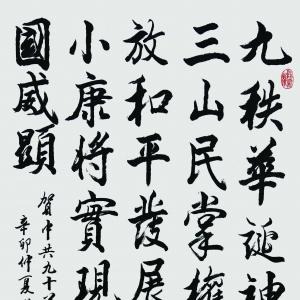 九秩華誕神
三山民掌權
放和平發展
小康將實現
國威顯
賀中共九十
辛卯仲夏